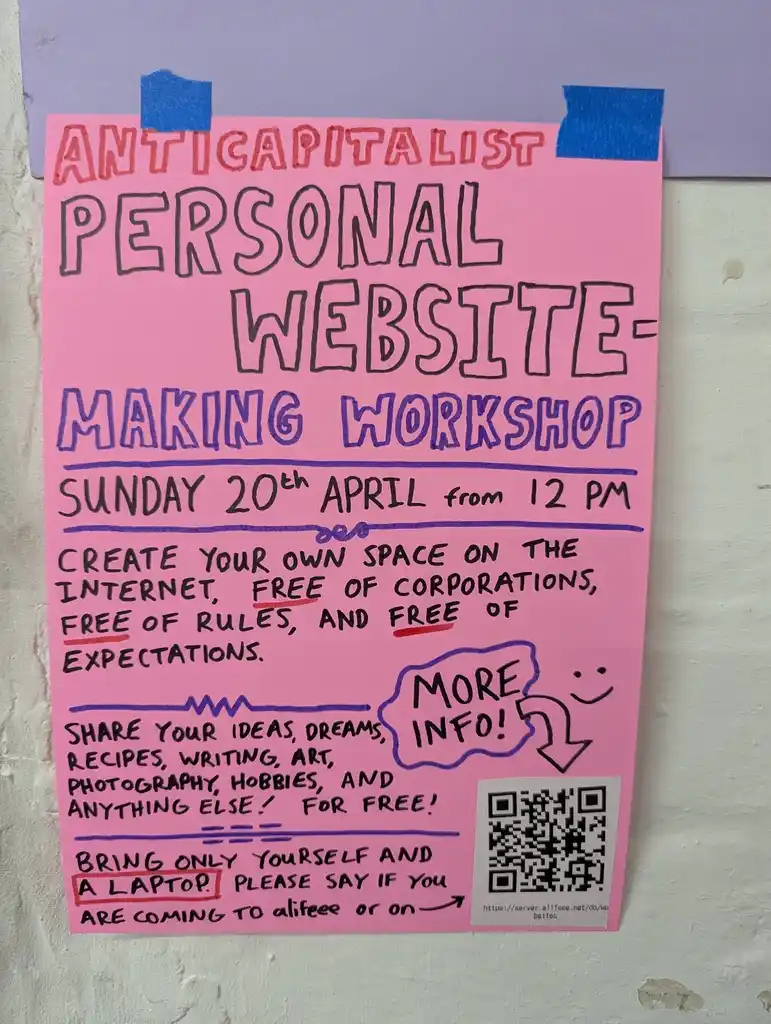 ANTICAPITALIST
PERSONAL
WEBSITE-
MAKING WORKSHOP
SUNDAY 20th APRIL from 12 PM
CREATE YOUR OWN SPACE ON THE
INTERNET, FREE OF CORPORATIONS,
FREE OF RULES, AND FREE OF
EXPECTATIONS.
MORE
INFO!
SHARE YOUR IDEAS, DREAMS,
RECIPES, WRITING, ART,
PHOTOGRAPHY, HOBBIES, AND
ANYTHING ELSE! FOR FREE!
BRING ONLY YOURSELF AND
A LAPTOP. PLEASE SAY IF YOU
ARE COMING TO alifeee or on